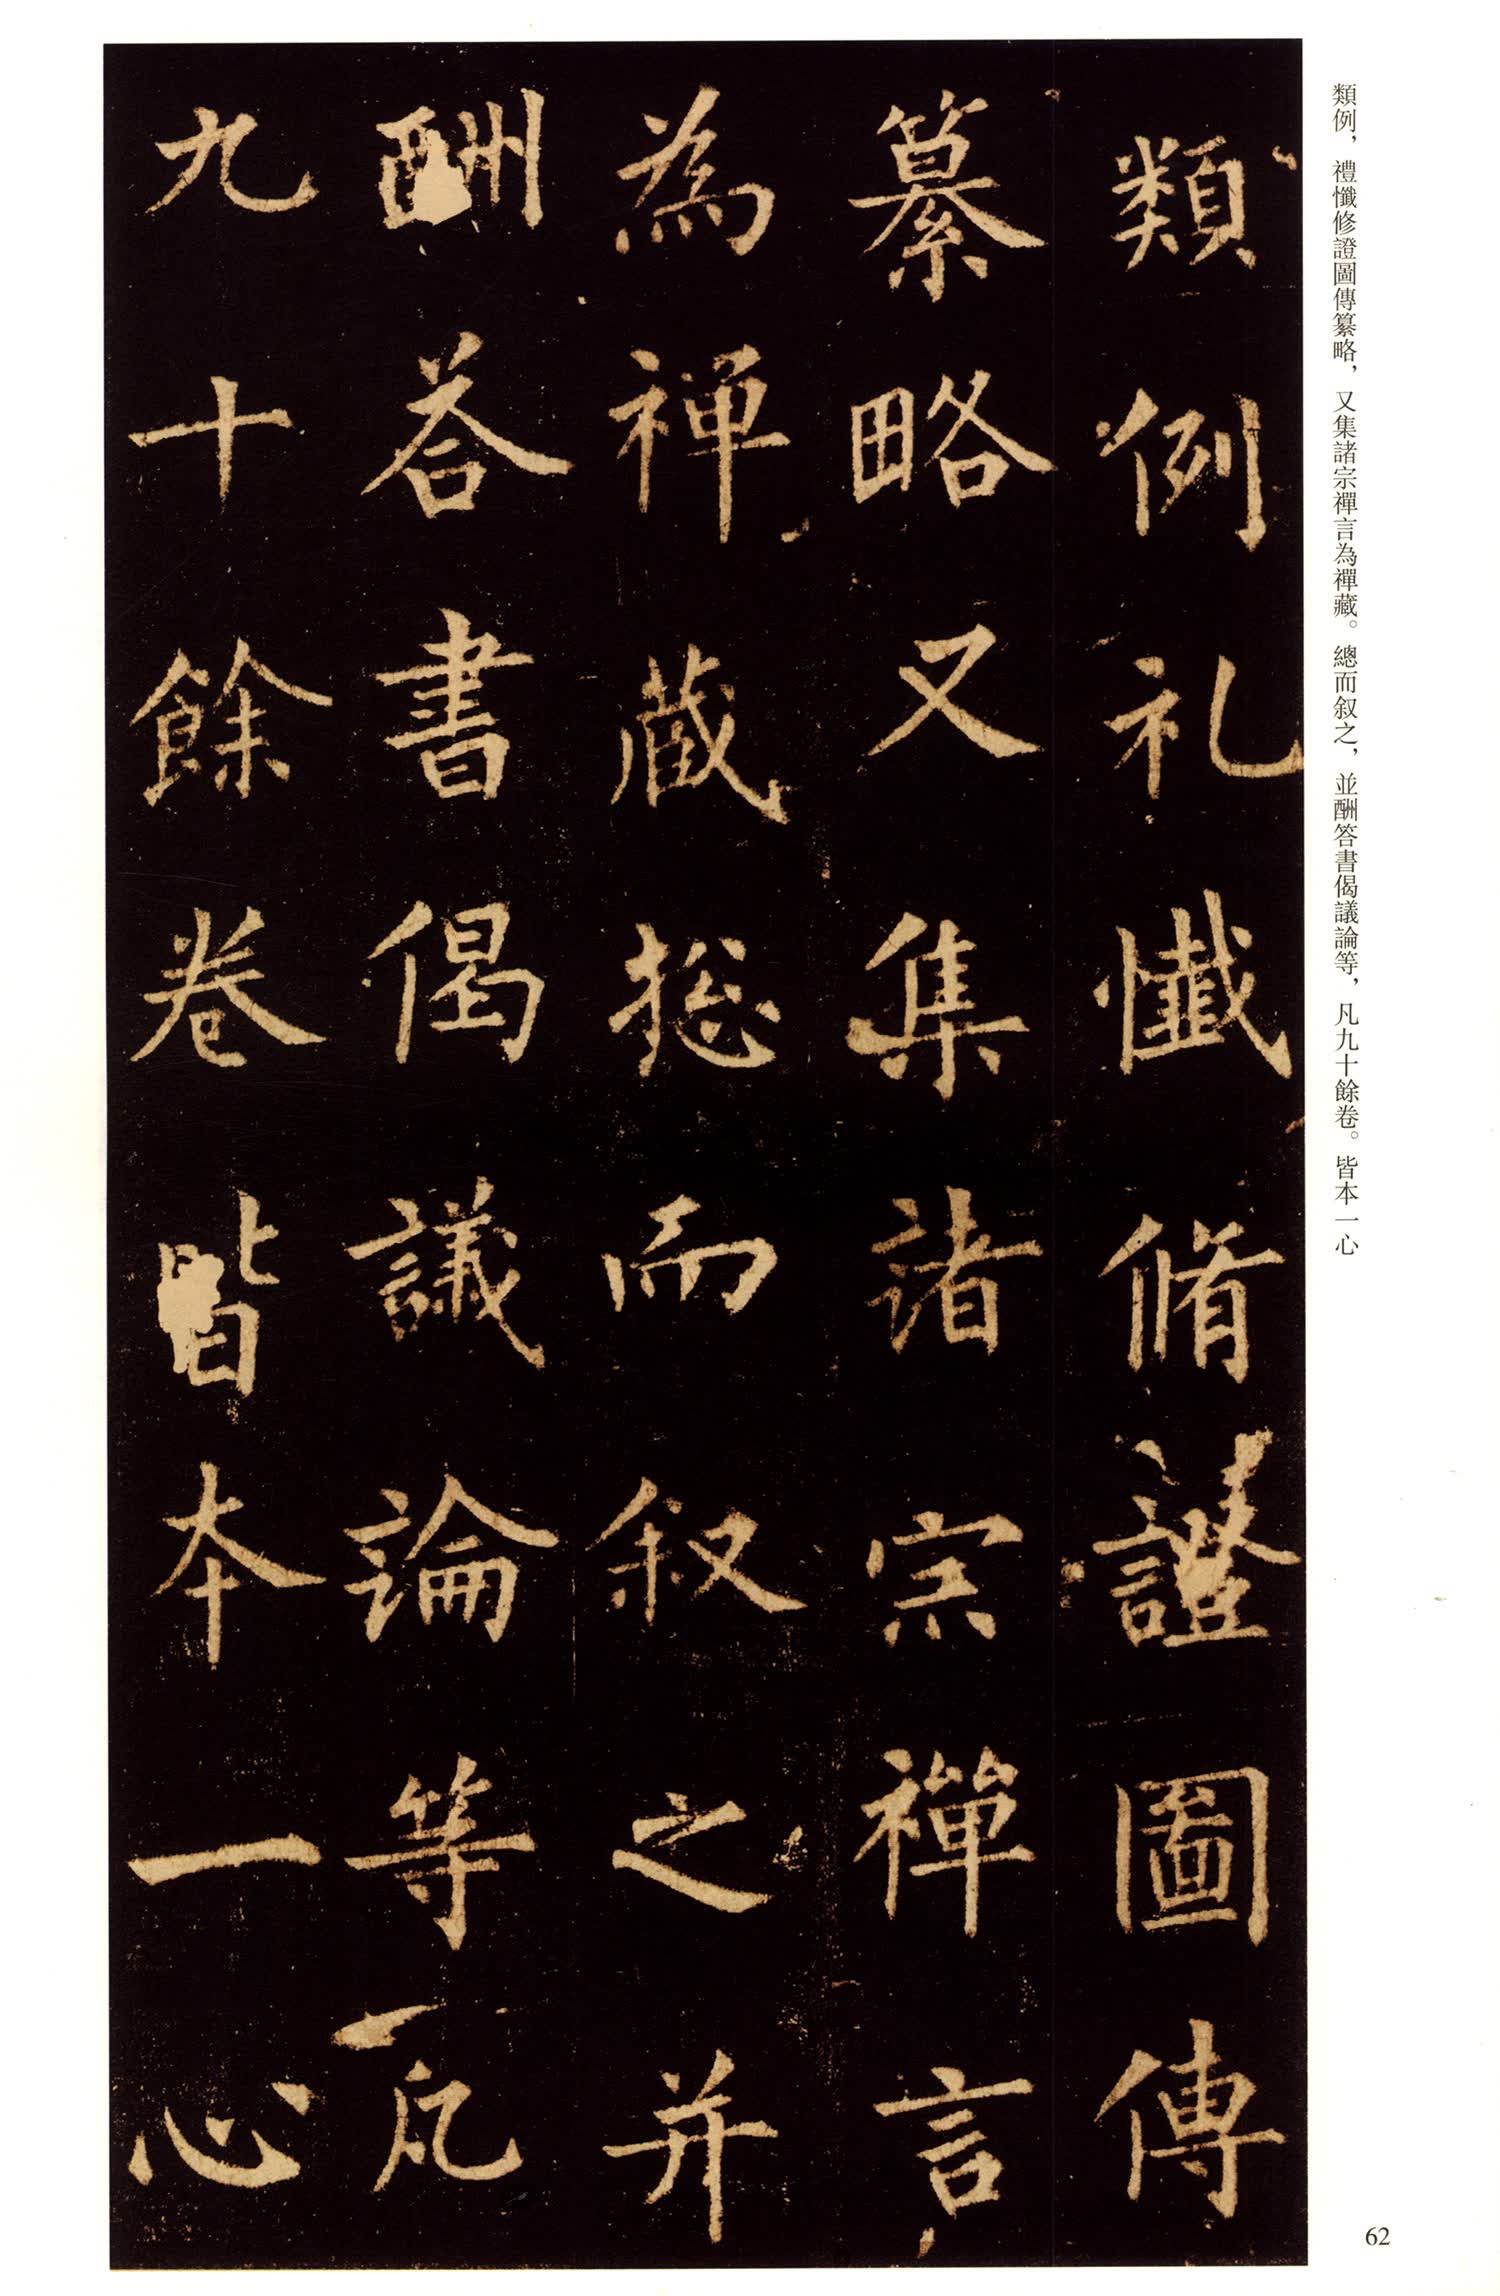 類例，禮懺修證圖傳纂略，又集諸宗禪言為禪藏。總而叙之，並酬答書偈議論等，凡九十餘卷。皆本一心
類例礼懺脩證圖傳
纂略又集諸宗禪言
為禅蔵揔而叙之并
酬荅書偈議論等凡
九十餘卷皆本一心
62